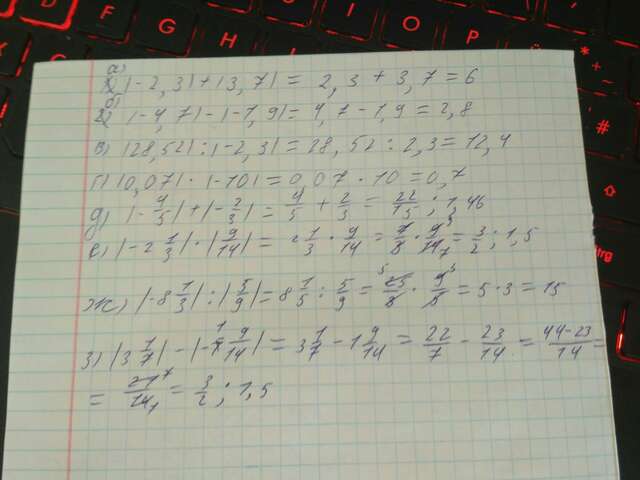 D F G H J I O P Ü
а) |-2,3| + |3,7| = 2,3 + 3,7 = 6
б) |-4,7| - |-1,9| = 4,7 - 1,9 = 2,8
в) |28,52| : |-2,3| = 28,52 : 2,3 = 12,4
г) |0,07| · |-10| = 0,07 · 10 = 0,7
д) |-4/5| + |-2/3| = 4/5 + 2/3 = 22/15 ; 1,46
е) |-2 1/3| · |9/14| = 2 1/3 · 9/14 = 7/3 · 9/14 = 3/2 ; 1,5
ж) |-8 1/3| : |5/9| = 8 1/5 : 5/9 = 25/3 · 9/5 = 5 · 3 = 15
з) |3 1/7| - |-1 9/14| = 3 1/7 - 1 9/14 = 22/7 - 23/14 = 44-23/14 =
= 21/14 = 3/2 ; 1,5